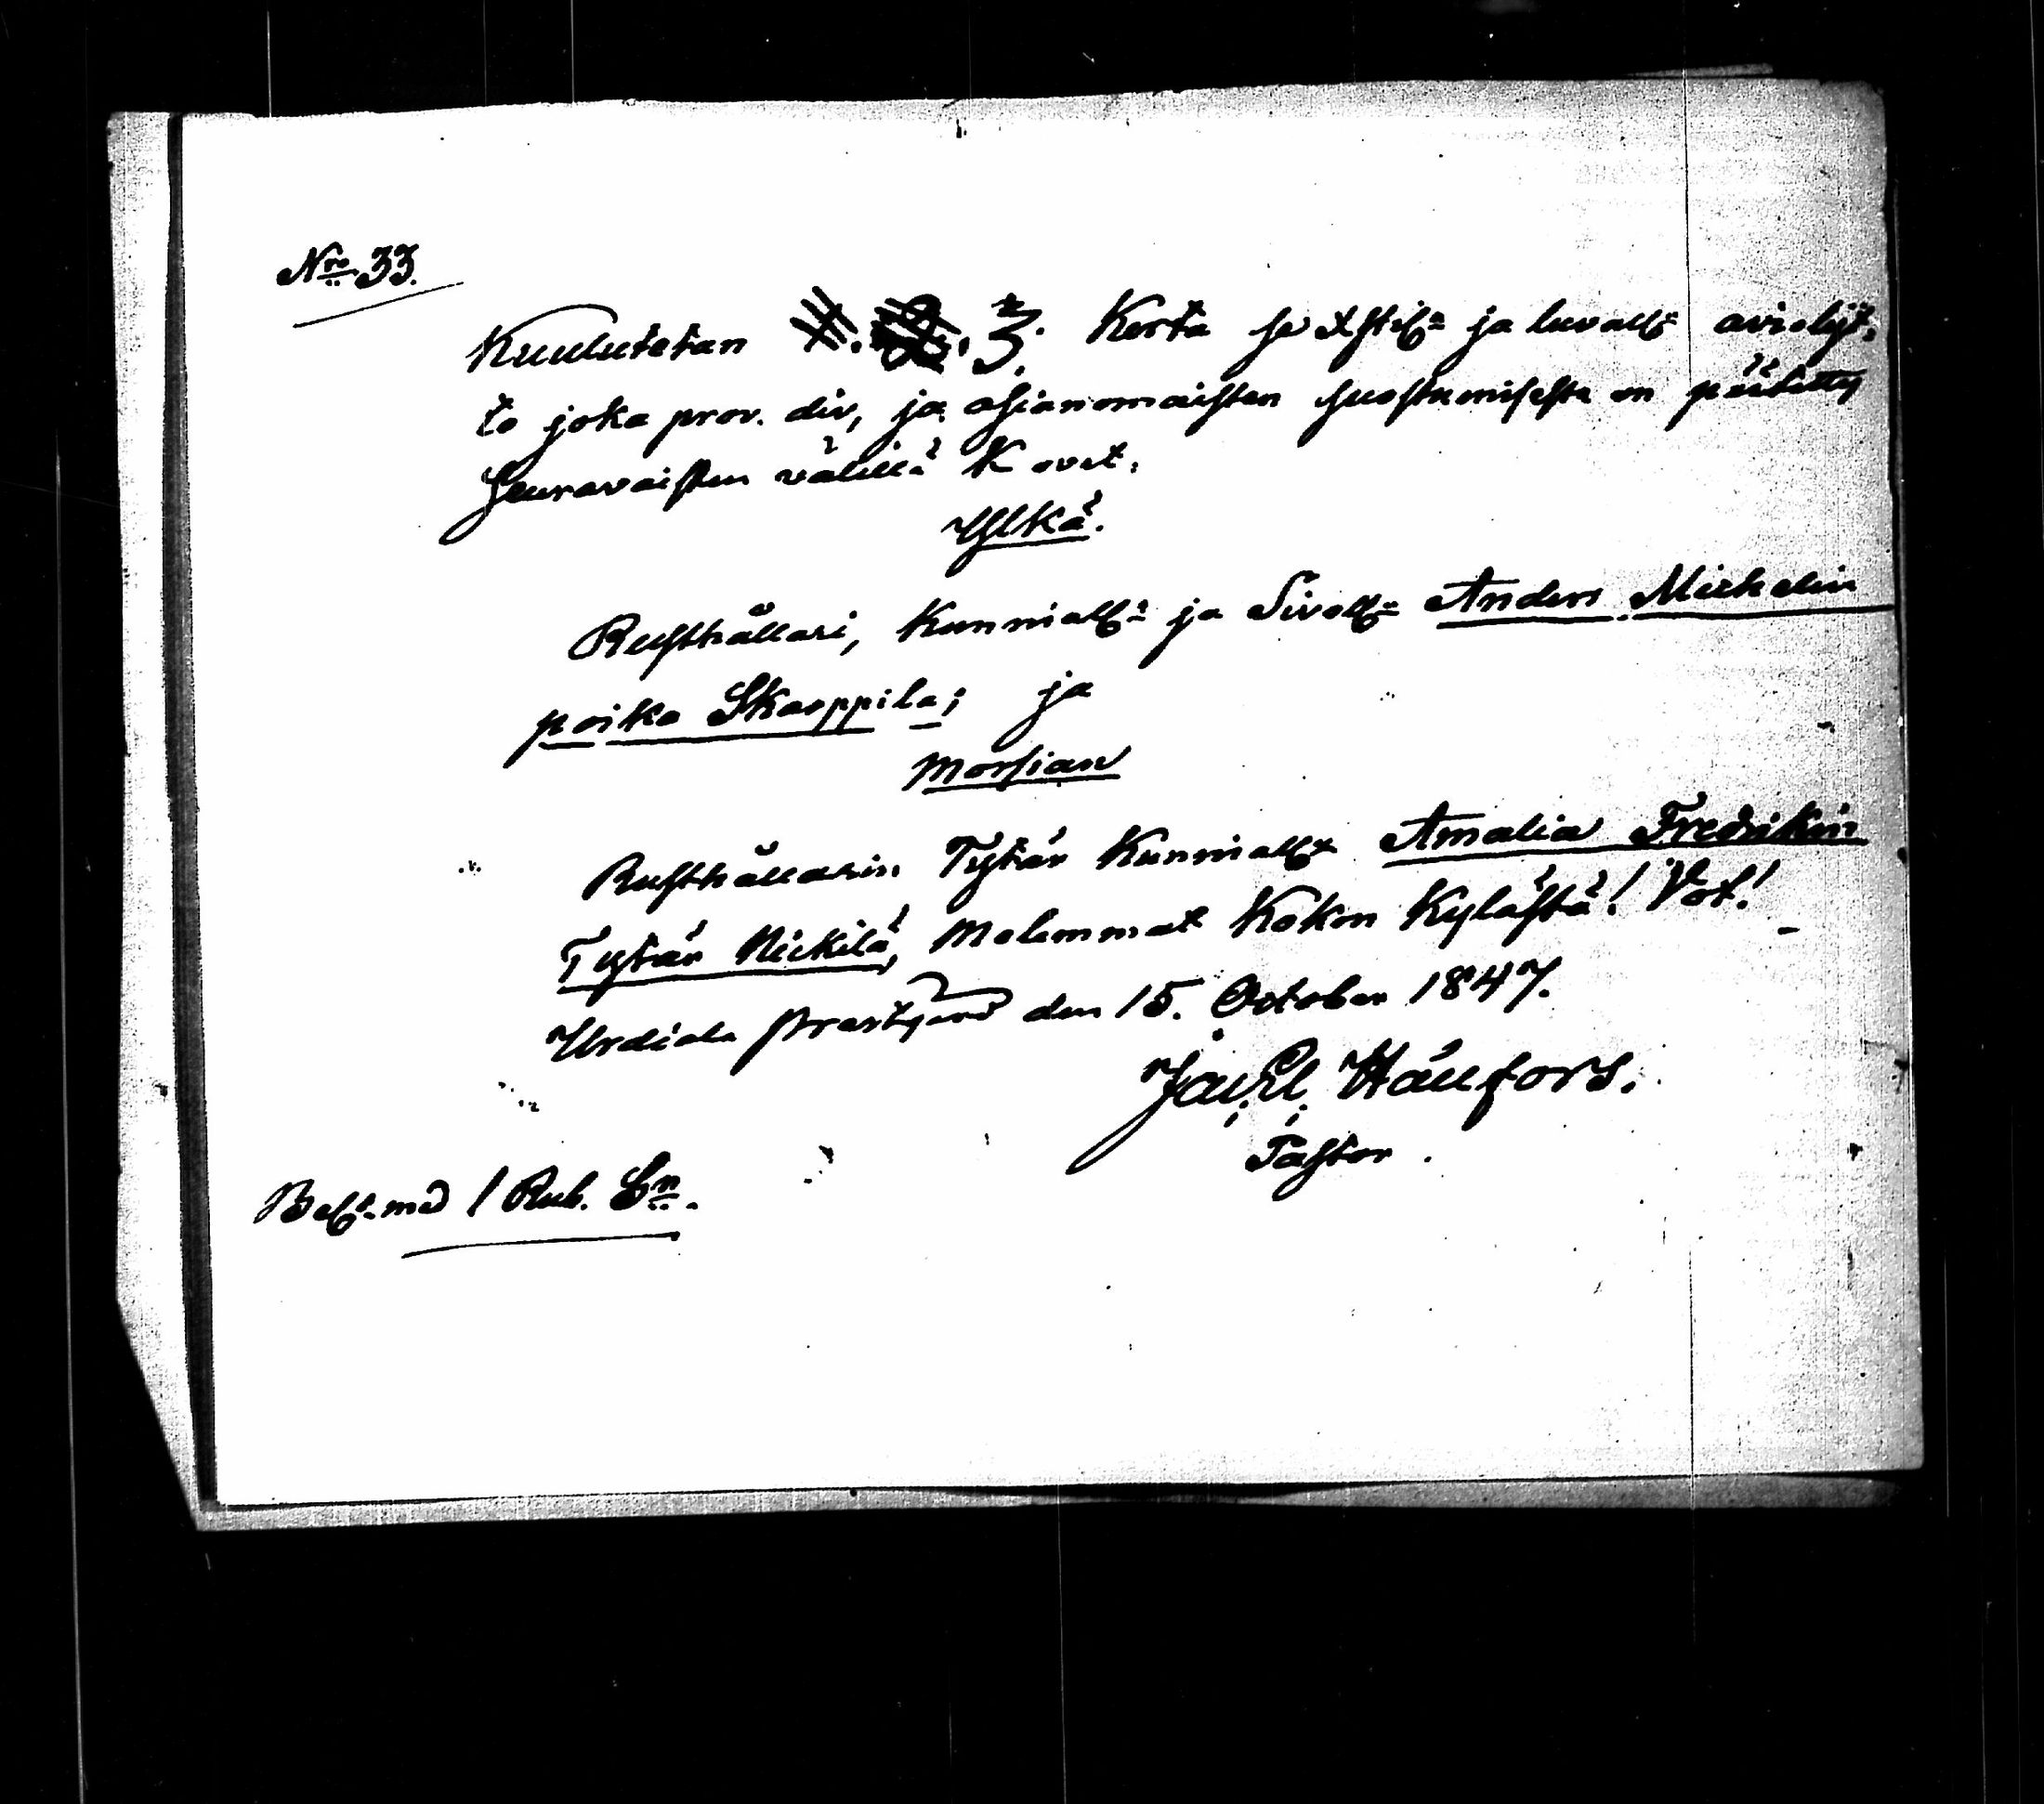 Nro 33.
Kuulutetan 1. 2. 3. Kerta se Xstil:n ja luvall:n avioliit:
to joka prov. div, ja asianomaisten suostumisesta on päätetty
seuravaisten välillä K ovat.
Ylkä.
Rusthållari, Kunniall:n ja Siviall:n Anders Michelin
poika Skarppila; ja
Morsian
Rusthållarin Tytär Kunniall:n Amalia Fredrikin
Tytär Nickilä, Molemmat Kokon Kylästä! Vot!
Urdiala Prestgård den 15. October 1847.
Hällfors.
Pastor.
Bel:t med 1 Rub. Sr.